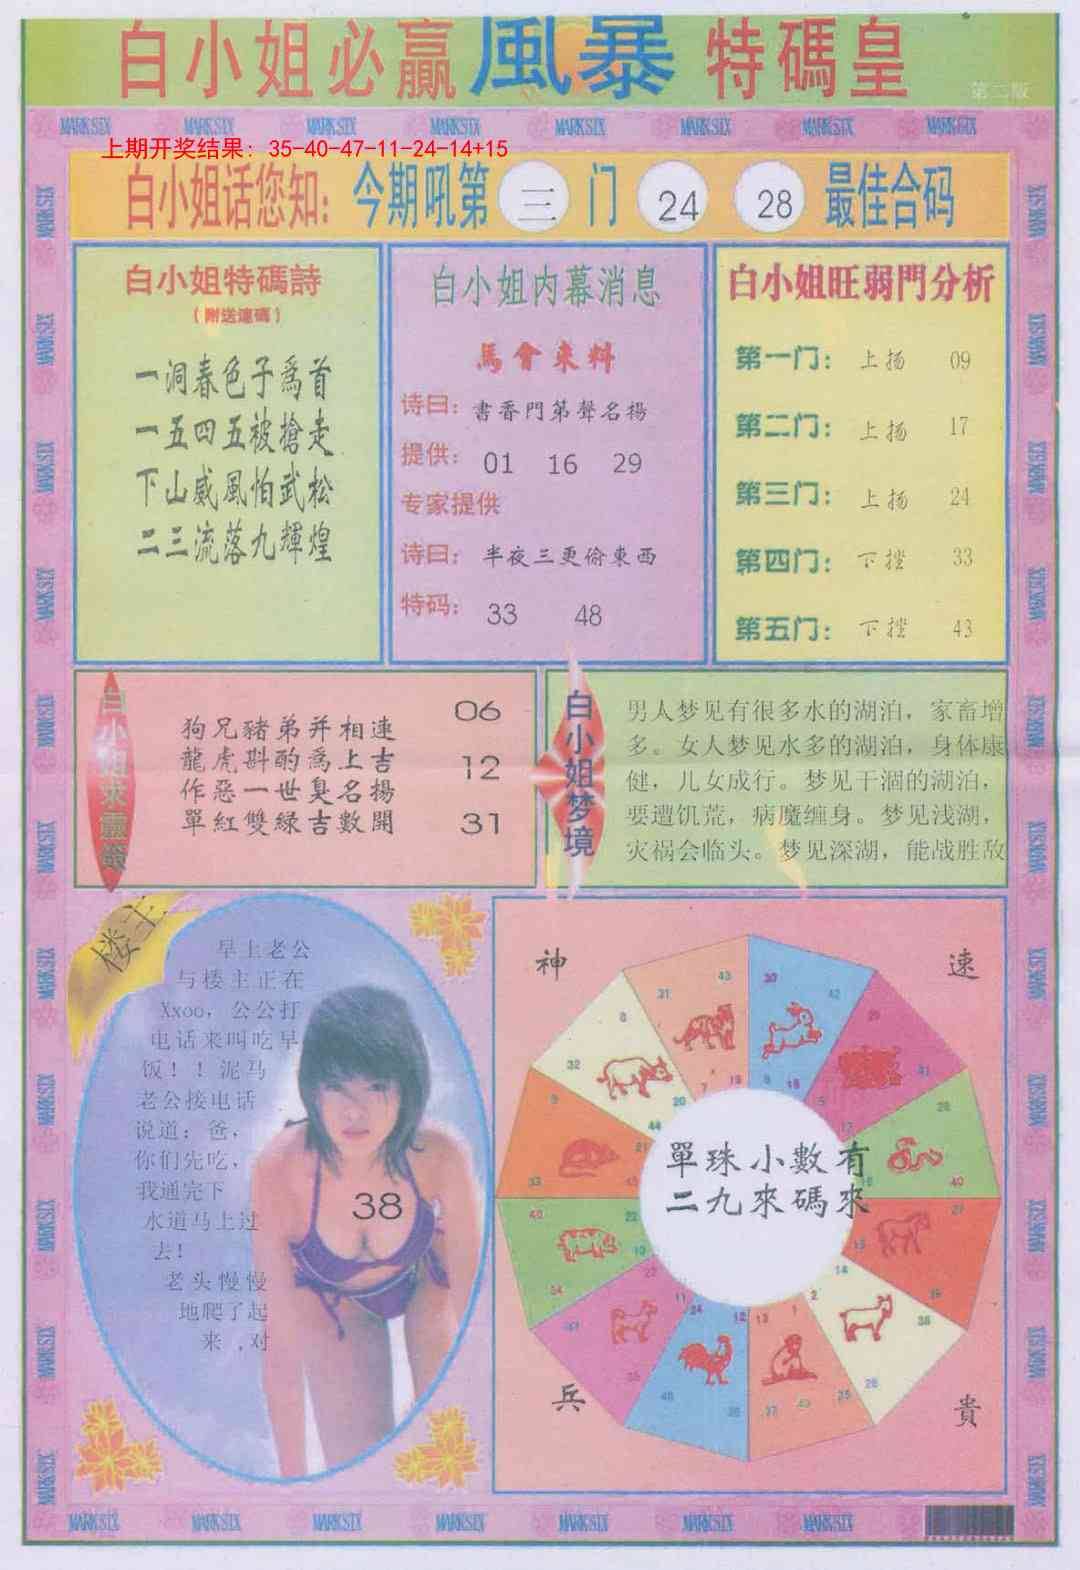 白小姐必赢風暴特碼皇
第二版
MARKSIX MARKSIX MARKSIX MARKSIX MARKSIX MARKSIX MARKSIX MARKSIX
上期开奖结果：35-40-47-11-24-14+15
白小姐话您知：今期吼第 三 门 24 28 最佳合码
白小姐特碼詩
（附送連碼）
一洞春色子爲首
一五四五被搶走
下山威風怕武松
二三流落九輝煌
白小姐内幕消息
馬會來料
诗曰：書香門第聲名揚
提供：01 16 29
专家提供
诗曰：半夜三更偷東西
特码：33 48
白小姐旺弱門分析
第一门：上扬 09
第二门：上扬 17
第三门：上扬 24
第四门：下挫 33
第五门：下挫 43
白小姐求靈籤
狗兄豬弟并相連
龍虎斟酌爲上吉
作惡一世臭名揚
單紅雙綠吉數開
06
12
31
白小姐梦境
男人梦见有很多水的湖泊，家畜增
多。女人梦见水多的湖泊，身体康
健，儿女成行。梦见干涸的湖泊，
要遭饥荒，病魔缠身。梦见浅湖，
灾祸会临头。梦见深湖，能战胜敌
楼主
早上老公
与楼主正在
Xxoo，公公打
电话来叫吃早
饭！！泥马
老公接电话
说道：爸，
你们先吃，
我通完下
水道马上过
去！
老头慢慢
地爬了起
来，对
38
神
速
單珠小數有
二九來碼來
兵
貴
MARKSIX MARKSIX MARKSIX MARKSIX MARKSIX MARKSIX MARKSIX